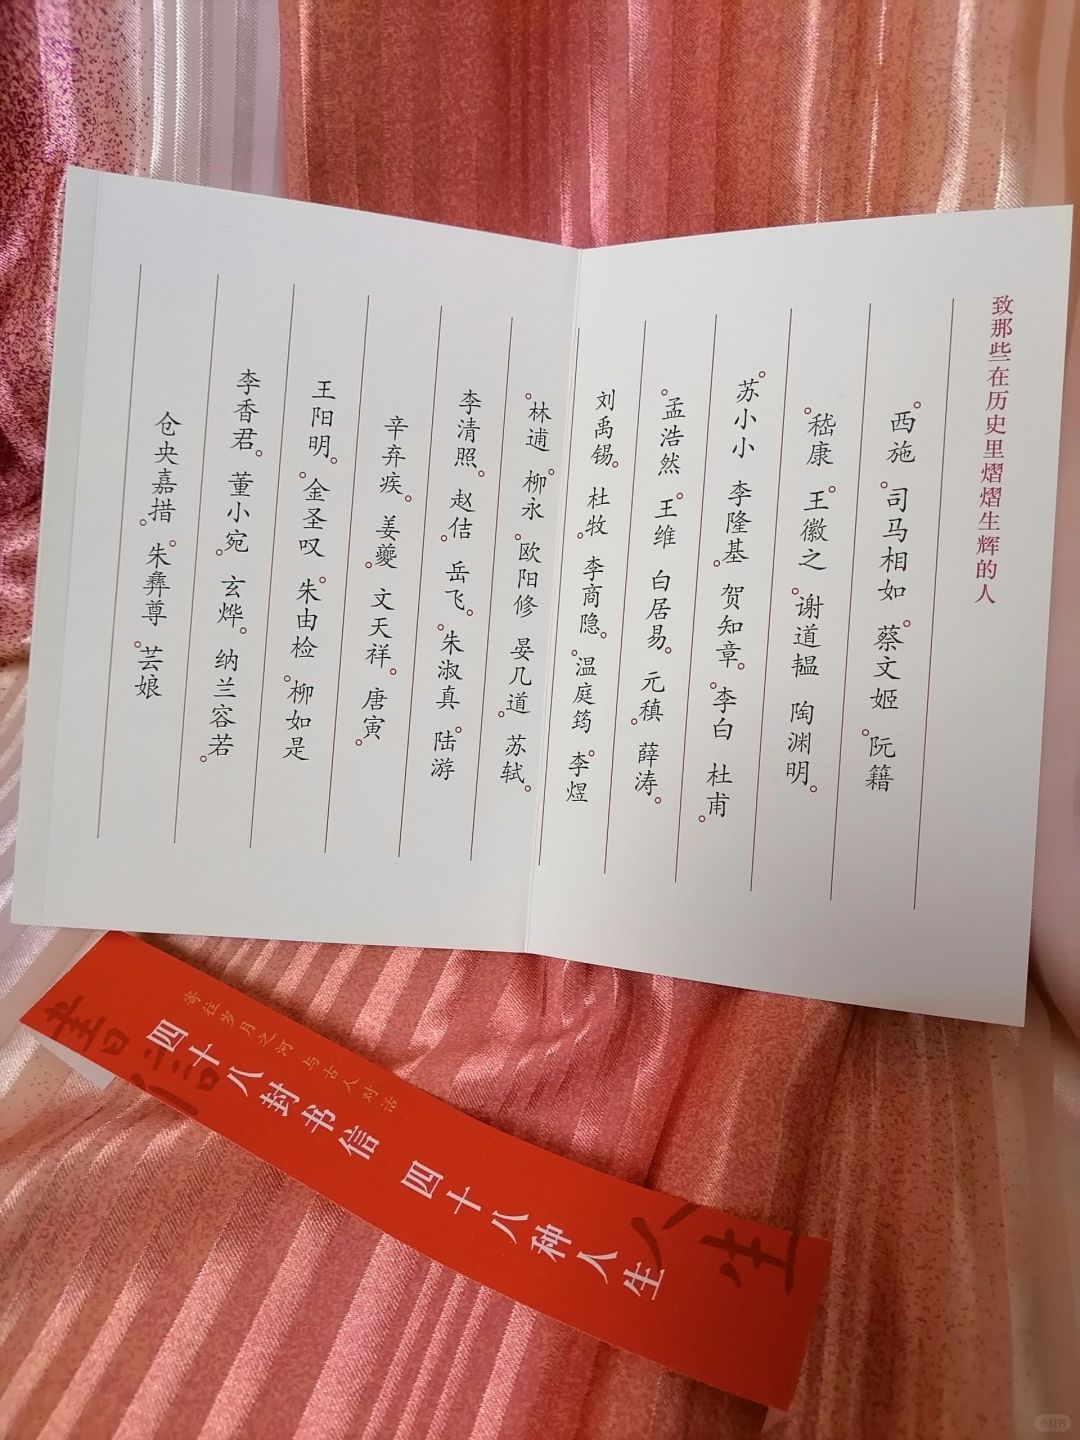 致那些在历史里熠熠生辉的人
西施 司马相如 蔡文姬 阮籍
嵇康 王徽之 谢道韫 陶渊明
苏小小 李隆基 贺知章 李白 杜甫
孟浩然 王维 白居易 元稹 薛涛
刘禹锡 杜牧 李商隐 温庭筠 李煜
林逋 柳永 欧阳修 晏几道 苏轼
李清照 赵佶 岳飞 朱淑真 陆游
辛弃疾 姜夔 文天祥 唐寅
王阳明 金圣叹 朱由检 柳如是
李香君 董小宛 玄烨 纳兰容若
仓央嘉措 朱彝尊 芸娘
寄往岁月之河 与古人对话
四十八封书信 四十八种人生
人生
小红书